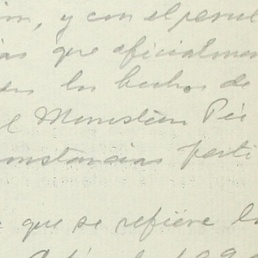 ion, y con el perul
ias que oficialmen
los hechos de
l Ministerio Pú
unstancias parti
que se refiere la